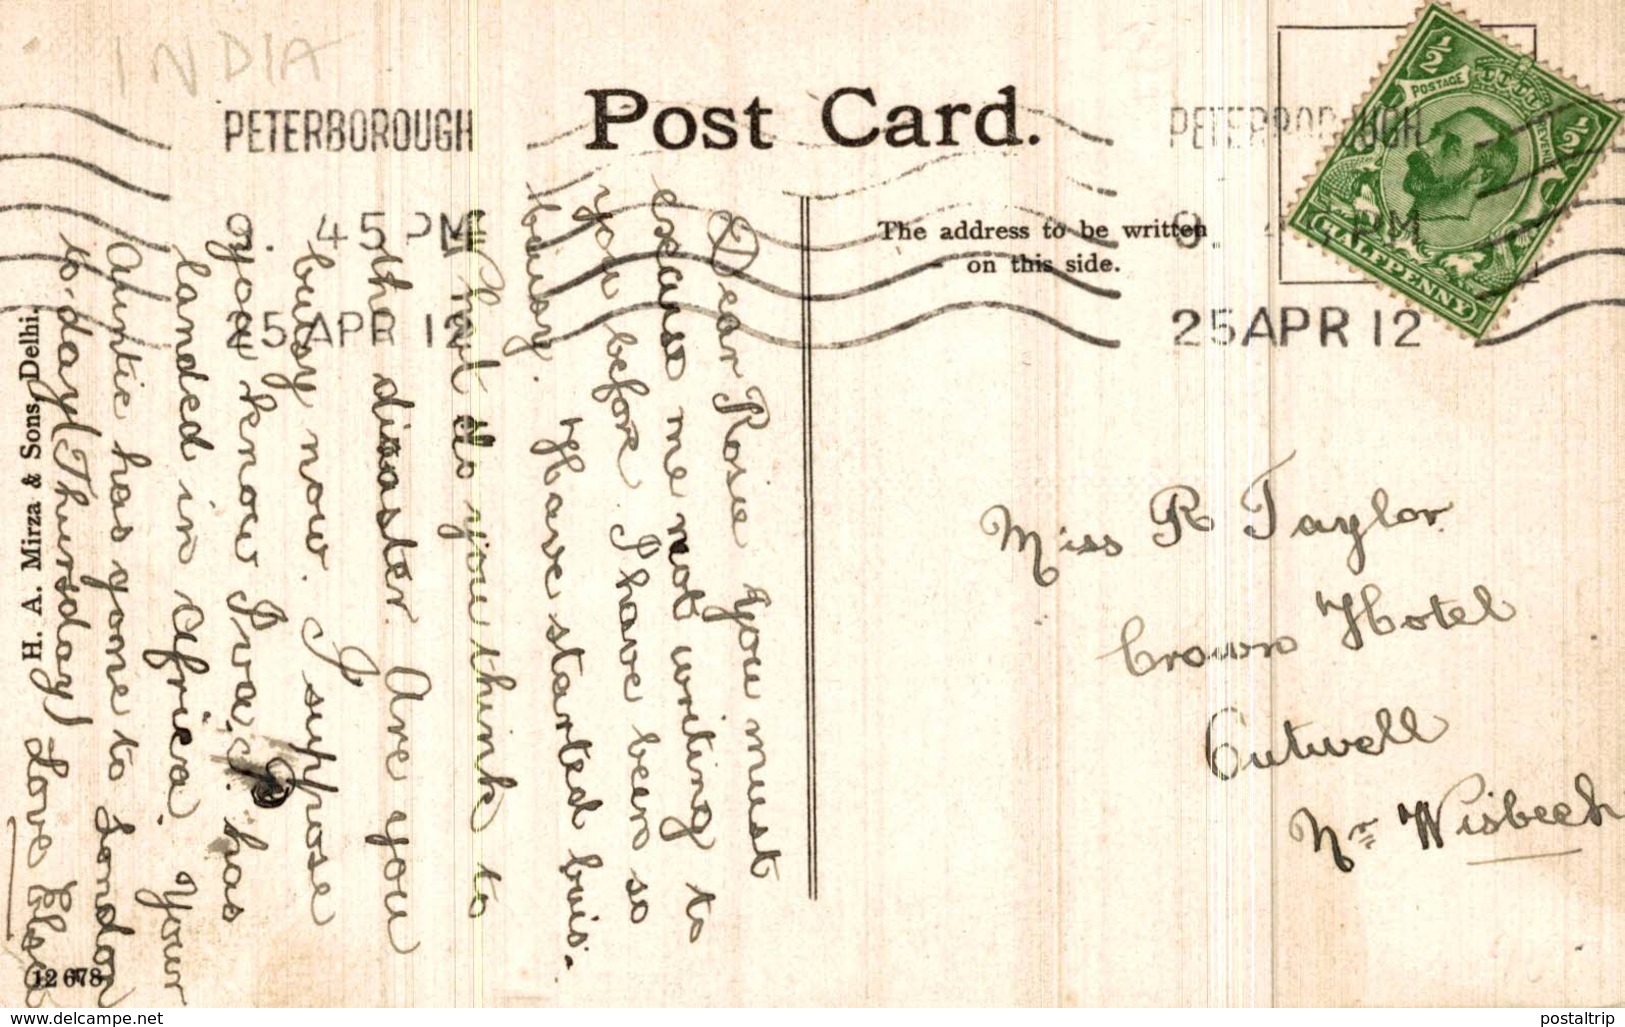 INDIA
PETERBOROUGH
9. 45 PM
25 APR 12
Post Card.
The address to be written
on this side.
PETERBOROUGH
9. 4 PM
25 APR 12
½
POSTAGE
REVENUE
½
HALFPENNY
Dear Rosie you must
excuse me not writing to
you before. I have been so
busy. Have started buis-
What do you think to
the disaster. Are you
busy now. I suppose
you know Iva. P. has
landed in Africa. Your
Auntie has gone to London
to-day (Thursday) Love Elsa
Miss R Taylor
Crown Hotel
Outwell
Nr Wisbech
H. A. Mirza & Sons, Delhi.
12678
www.delcampe.net
postaltrip